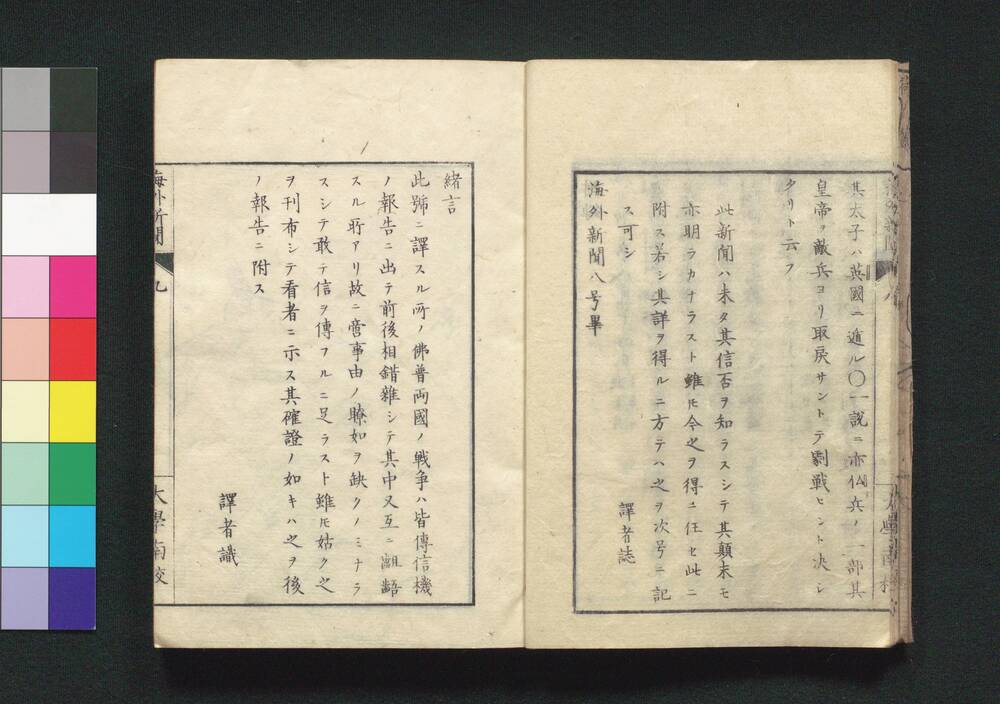 其太子ハ英國ニ遁ル〇一説ニ亦仏兵ノ一部其
皇帝ヲ敵兵ヨリ取戻サントテ劇戦セント决シ
タリト云フ
此新聞ハ未タ其信否ヲ知ラスシテ其顛末モ
亦明ラカナラスト雖𪜈今之ヲ得ニ任セ此ニ
附ス若シ其詳ヲ得ルニ方テハ之ヲ次号ニ記
ス可シ
譯者誌
海外新聞八号畢
緒言
此號ニ譯スル所ノ佛普両國ノ戦争ハ皆傳信機
ノ報告ニ出テ前後相錯雜シテ其中又互ニ齟齬
スル所アリ故ニ啻事由ノ瞭如ヲ缺クノミナラ
スシテ敢テ信ヲ傳フルニ足ラスト雖𪜈姑ク之
ヲ刊布シテ看者ニ示ス其確證ノ如キハ之ヲ後
ノ報告ニ附ス
譯者識
海外新聞
九
大學南校